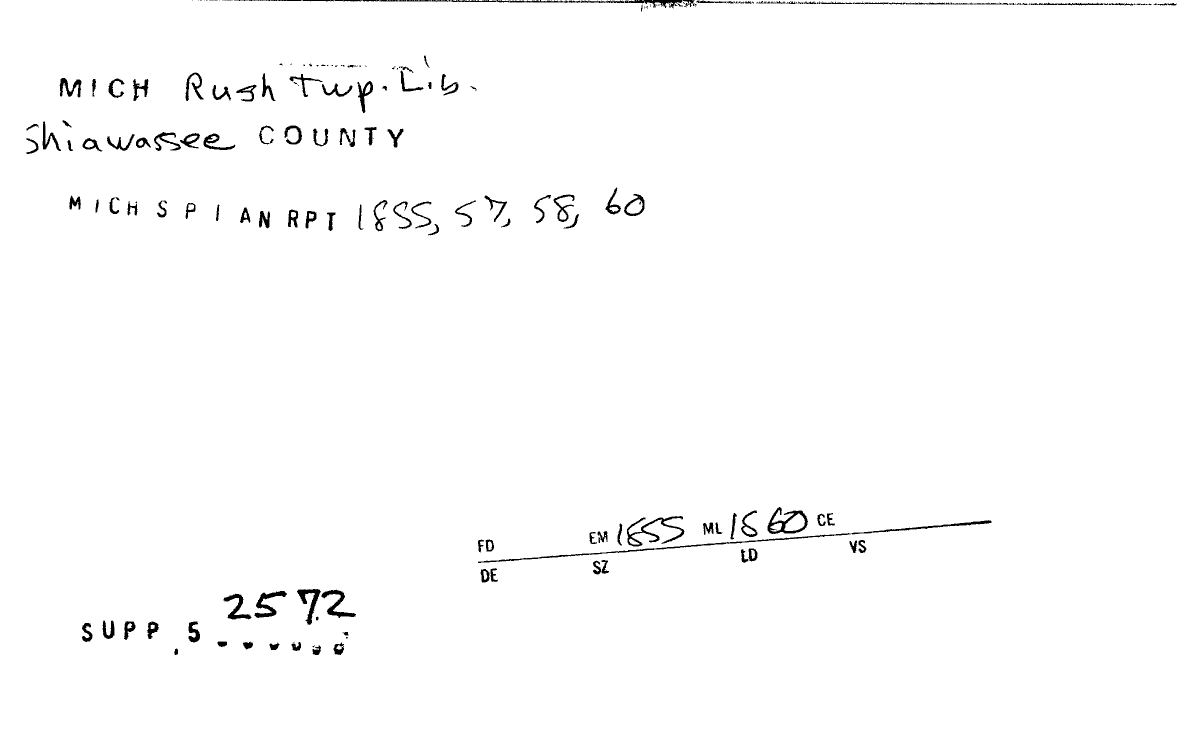 MICH Rush Twp. Lib.
Shiawassee COUNTY
MICH S P I AN RPT 1855, 57, 58, 60
FD EM 1855 ML 1860 CE
DE SZ LD VS
2572
SUPP. 5